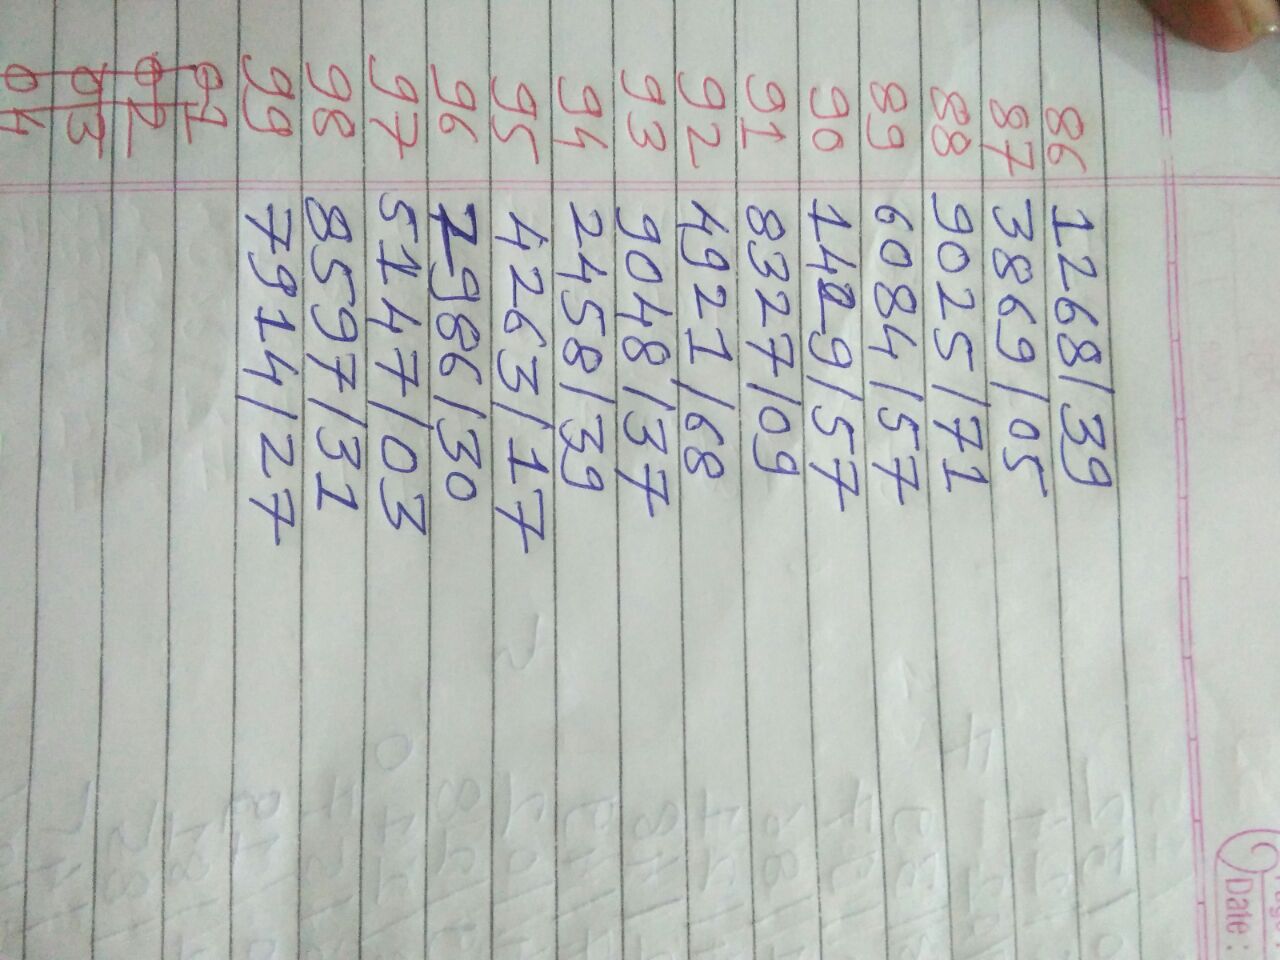 Date :
86 1268/39
87 3869/05
88 9025/71
89 6084/57
90 1429/57
91 8327/09
92 4921/68
93 9048/37
94 2458/39
95 4263/17
96 7986/30
97 5147/03
98 8597/31
99 7914/27
01
02
03
04